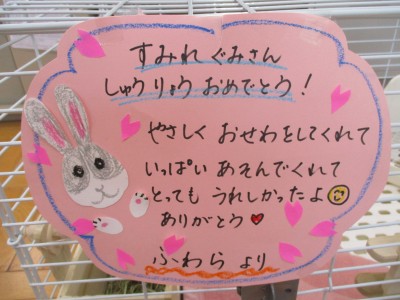 すみれ ぐみさん
しゅうりょう おめでとう!
やさしく おせわをしてくれて
いっぱい あそんでくれて
とっても うれしかったよ
ありがとう
ふわら より